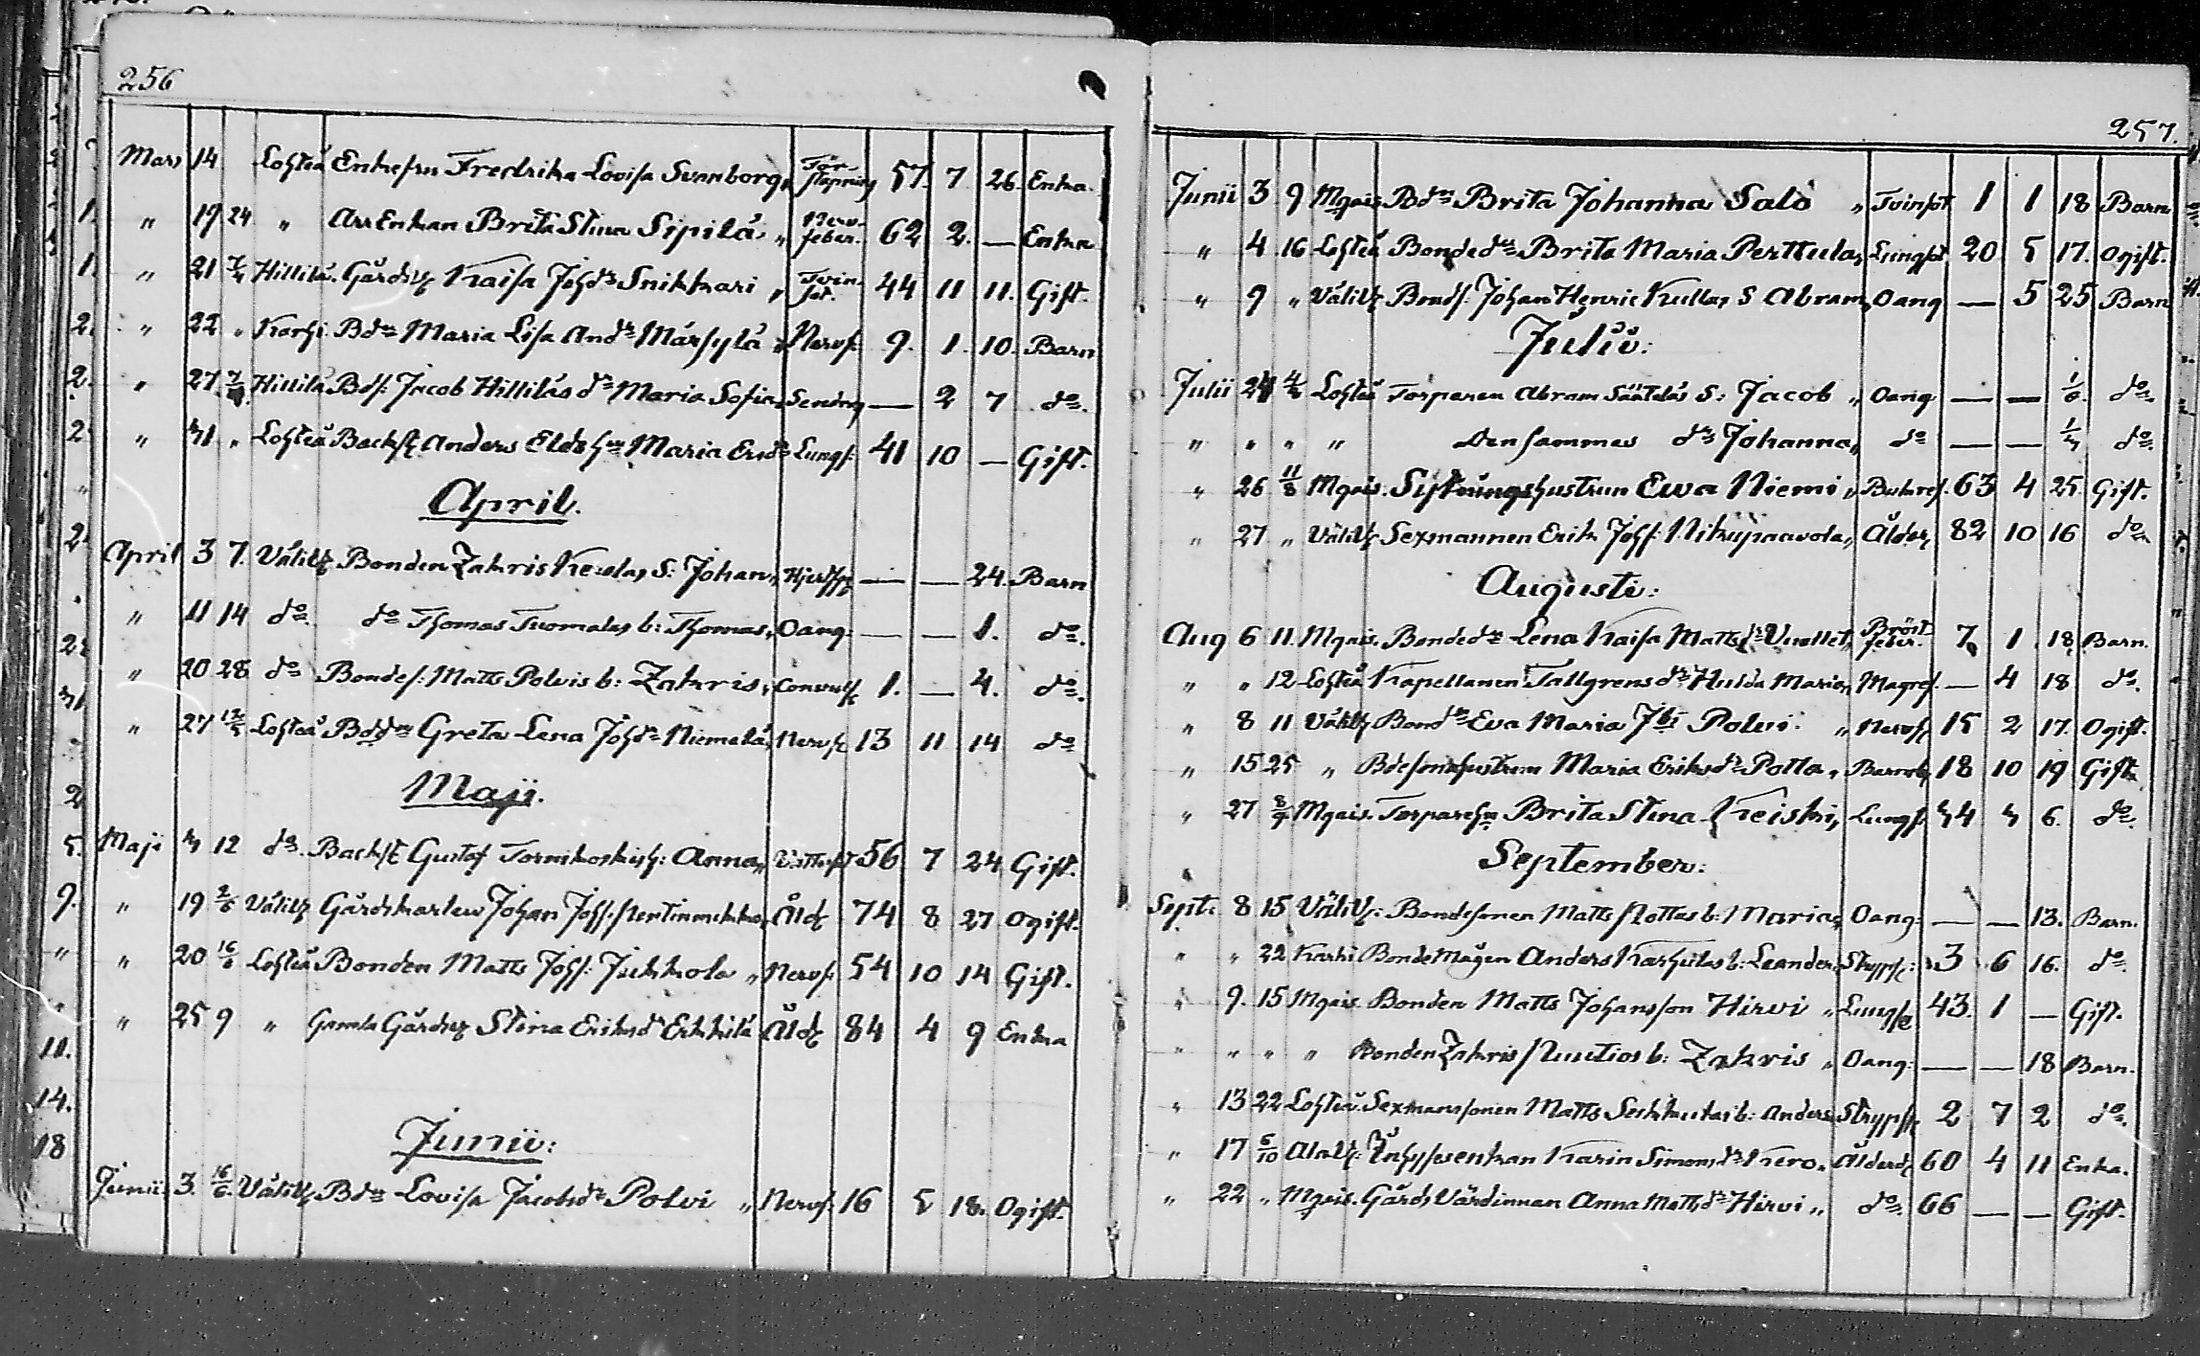 256
Mars 14 Lohteå Enkefru Fredrika Lovisa Svanborg, Förstoppning 57. 7. 26. Enka.
" 19 24. " Arr Enkan Brita Stina Sipilä " Nervfeber. 62 2. — Enka
" 21 7/4 Hillilä. Gårdshr Kaisa Johdr Snikkari " Tvinsot. 44 11 11. Gift.
" 22 " Karhi. Bdr Maria Lisa Andr Märsylä " Nervf. 9. 1. 10. Barn
" 27. 7/4. Hillilä Bds: Jacob Hilliläs dr Maria Sofia, Sendrag — 2 7 do.
" 31 " Lohteå Backst Anders Elds hu Maria Ersdr Lungs. 41 10 — Gift.
April.
April 3 7. Välik Bonden Zakris Keulas S: Johan, — — 24. Barn
" 11 14 do. do Thomas Tuomalas b: Thomas, Oang: — — 1. do.
" 20 28 do Bondes: Matts Polvis b: Zakris, Convuls 1. — 4. do.
" 27 12/5 Lohteå Bddr Greta Lena Johdr Niemelä, Nervf 13 11 14 do
Maji.
Maji 3 12 do. Backst Gustaf Tornikoskis h: Anna, Vattusot 56 7 24 Gift.
" 19 2/6 Välik Gårdskarlen Johan Johss. Åld 74 8 27 Ogift.
" 20 16/6 Lohteå Bonden Matts Johss: Jukkola " Nervf: 54 10 14 Gift.
" 25 9 " Gamla Gårdsv Stina Eriksdr Erkkilä Åld 84 4 9 Enka
Junii:
Junii 3. 16/6. Välik Bdr Lovisa Jacobsdr Polvi " Nervf: 16 5 18. Ogift.
257.
Junii 3 9 Mgais. Bdr Brita Johanna Salo " Tvinsot 1 1 18 Barn
" 4 16 Lohteå Bondedr Brita Maria Perttula, Lungsot 20 5 17. Ogift.
" 9 " Välik Bonds: Johan Henric Kullas S Abram, Oang — 5 25 Barn
Julii:
Julii 24 4/8 Lohteå Torparen Abram Sääteläs S: Jacob " Oang — — 1/6. do.
" " " " Den sammes dr Johanna, do — — 1/3 do.
" 26 11/8 Mgais. Sytnings hustrun Ewa Niemi " Bukref. 63 4 25 Gift.
" 27 " Välik Sexmannen Erik Johss: Nikupaavola, Ålder 82 10 16 do
Augusti:
Aug 6 11. Mgais. Bondedr Lena Kaisa Mattsdr Vuollet, Bröstfeber. 7 1 18 Barn.
" " 12 Lohteå Kapellanen Tallgrens dr Hulda Maria, Magref. — 4 18 do.
" 8 11 Välik Bonddr Eva Maria Polvi. " Nervf 15 2 17. Ogift.
" 15 25 " Bdesonshustrun Maria Eriksdr Potla " Barnsb 18 10 19 Gift
" 27 8/9 Mgais. Torpareh Brita Stina Keiski, Lungs. 34 3 6. do.
September:
Sept: 8 15 Välik: Bondesonen Matts Nottas b: Maria, Oang: — — 13. Barn.
" " 22 Karhi Bonde Mågen Anders Karhulas b: Leander, Strypss: 3 6 16. do.
" 9. 15 Mgais Bonden Matts Johansson Hirvi " Lungs 43. 1 — Gift.
" " " " Bonden Zakris Nuutios b: Zakris " Oang: — — 18 Barn.
" 13 22 Lohteå. Sexmanssonen Matts b: Anders Strypss 2 7 2 do.
" 17 5/10 Alav. Inhysesenkan Karin Simonsdr Kero. Ålderd 60 4 11 Enka.
" 22 " Mgais. Gårds Värdinnan Anna Mattsdr Hirvi " do. 66 — — Gift.